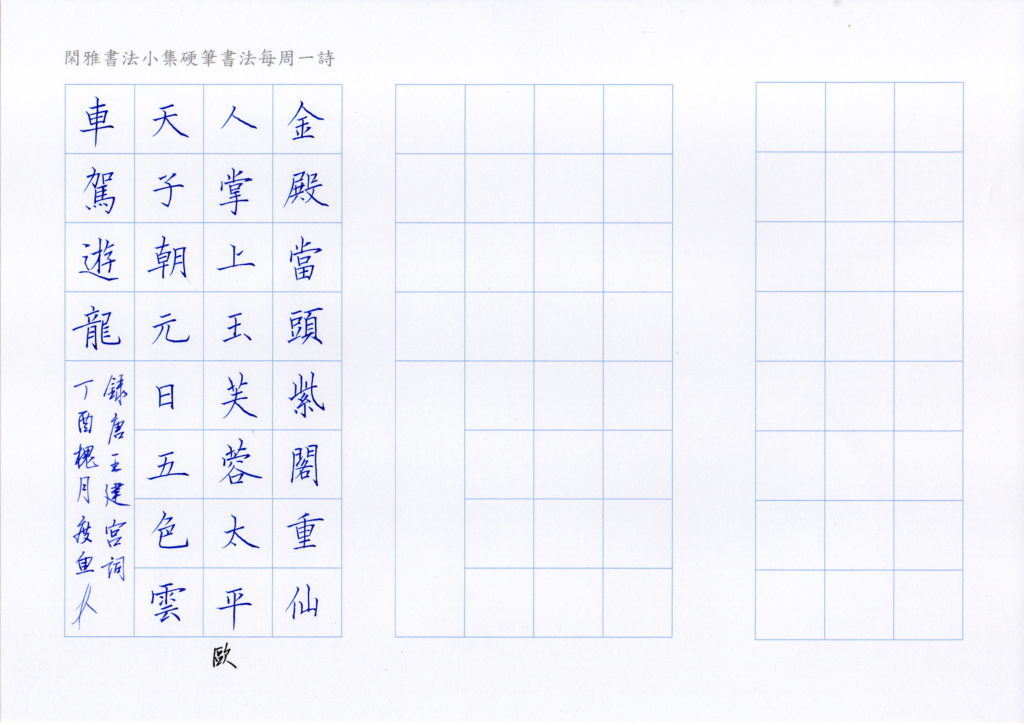 閑雅書法小集硬筆書法每周一詩
金殿當頭紫閣重仙
人掌上玉芙蓉太平
天子朝元日五色雲
車駕遊龍
録唐王建宮詞
丁酉槐月度魚
歐